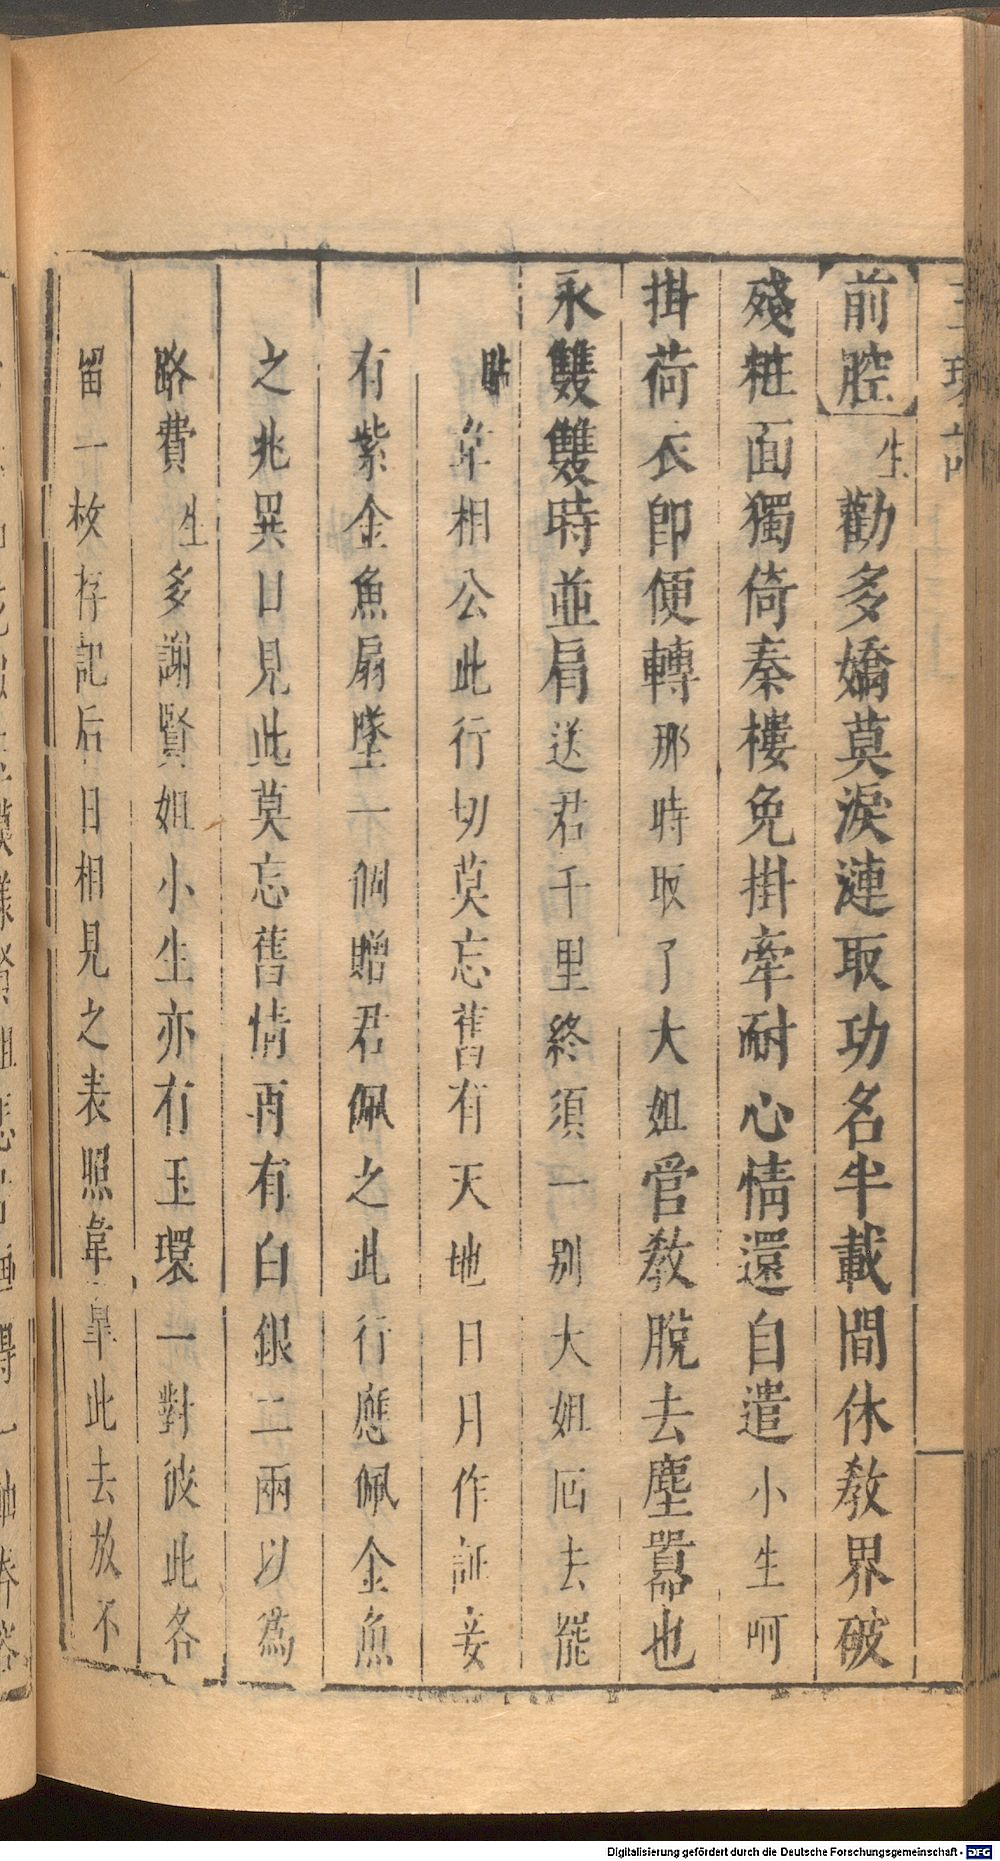 前腔 生 勸多嬌莫淚漣取功名半載間休教界破
殘粧面獨倚秦樓免掛牽耐心情還自遣 小生呵
掛荷衣即便轉 那時取了大姐 官教脫去塵囂也
永雙雙時並肩 送君千里終須一别大姐回去罷
貼 韋相公此行切莫忘舊有天地日月作証妾
有紫金魚扇墜一個贈君佩之此行應佩金魚
之兆異日見此莫忘舊情再有白銀二兩以為
路費 生 多謝賢姐小生亦有玉環一對彼此各
留一枚存記后日相見之表照韋皐此去放不
Digitalisierung gefördert durch die Deutsche Forschungsgemeinschaft - DFG